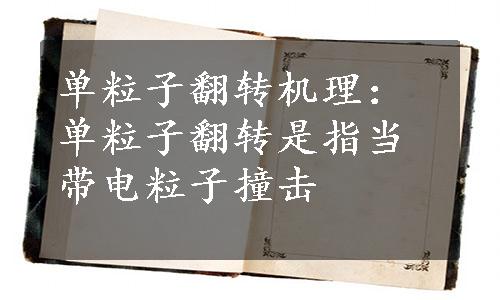 单粒子翻转机理：
单粒子翻转是指当
带电粒子撞击